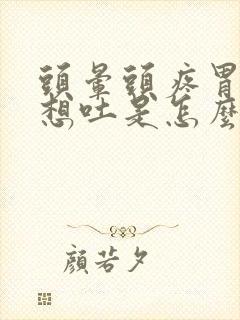 頭暈頭疼胃
想吐是怎麼
顏若夕